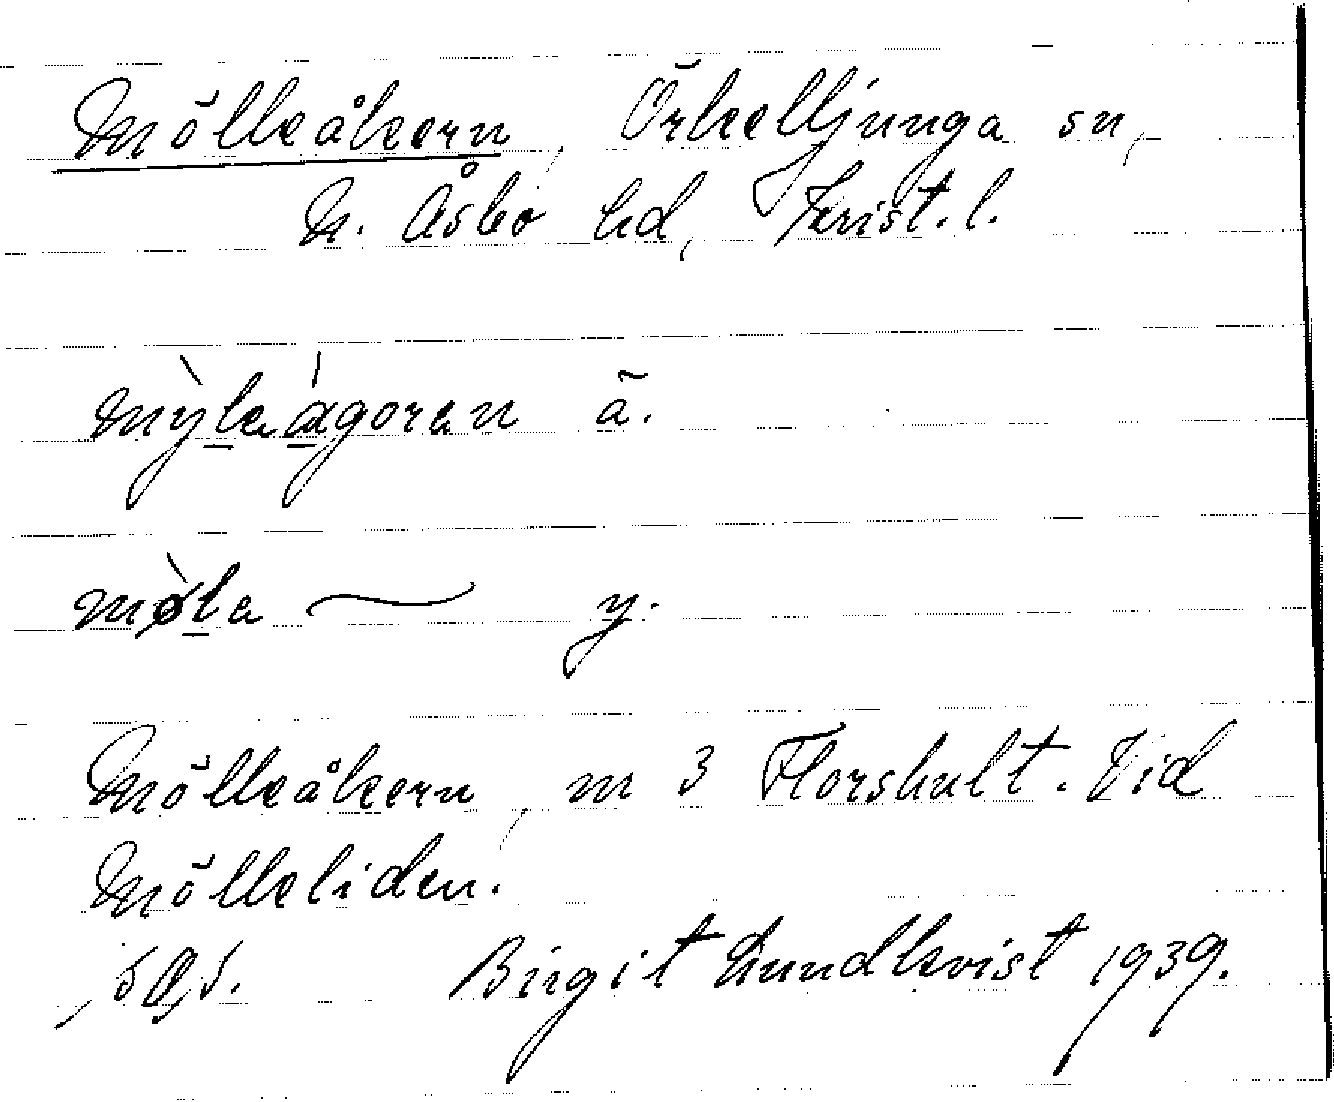 Mölleåkern, Örkelljunga sn,
N. Åsbo hd, Krist. l.
mỳlaágoran ã.
mø̀la ~ y.
Mölleåkern, m 3 Florshult. Vid
Mölleliden.
Birgit Lundkvist 1939.